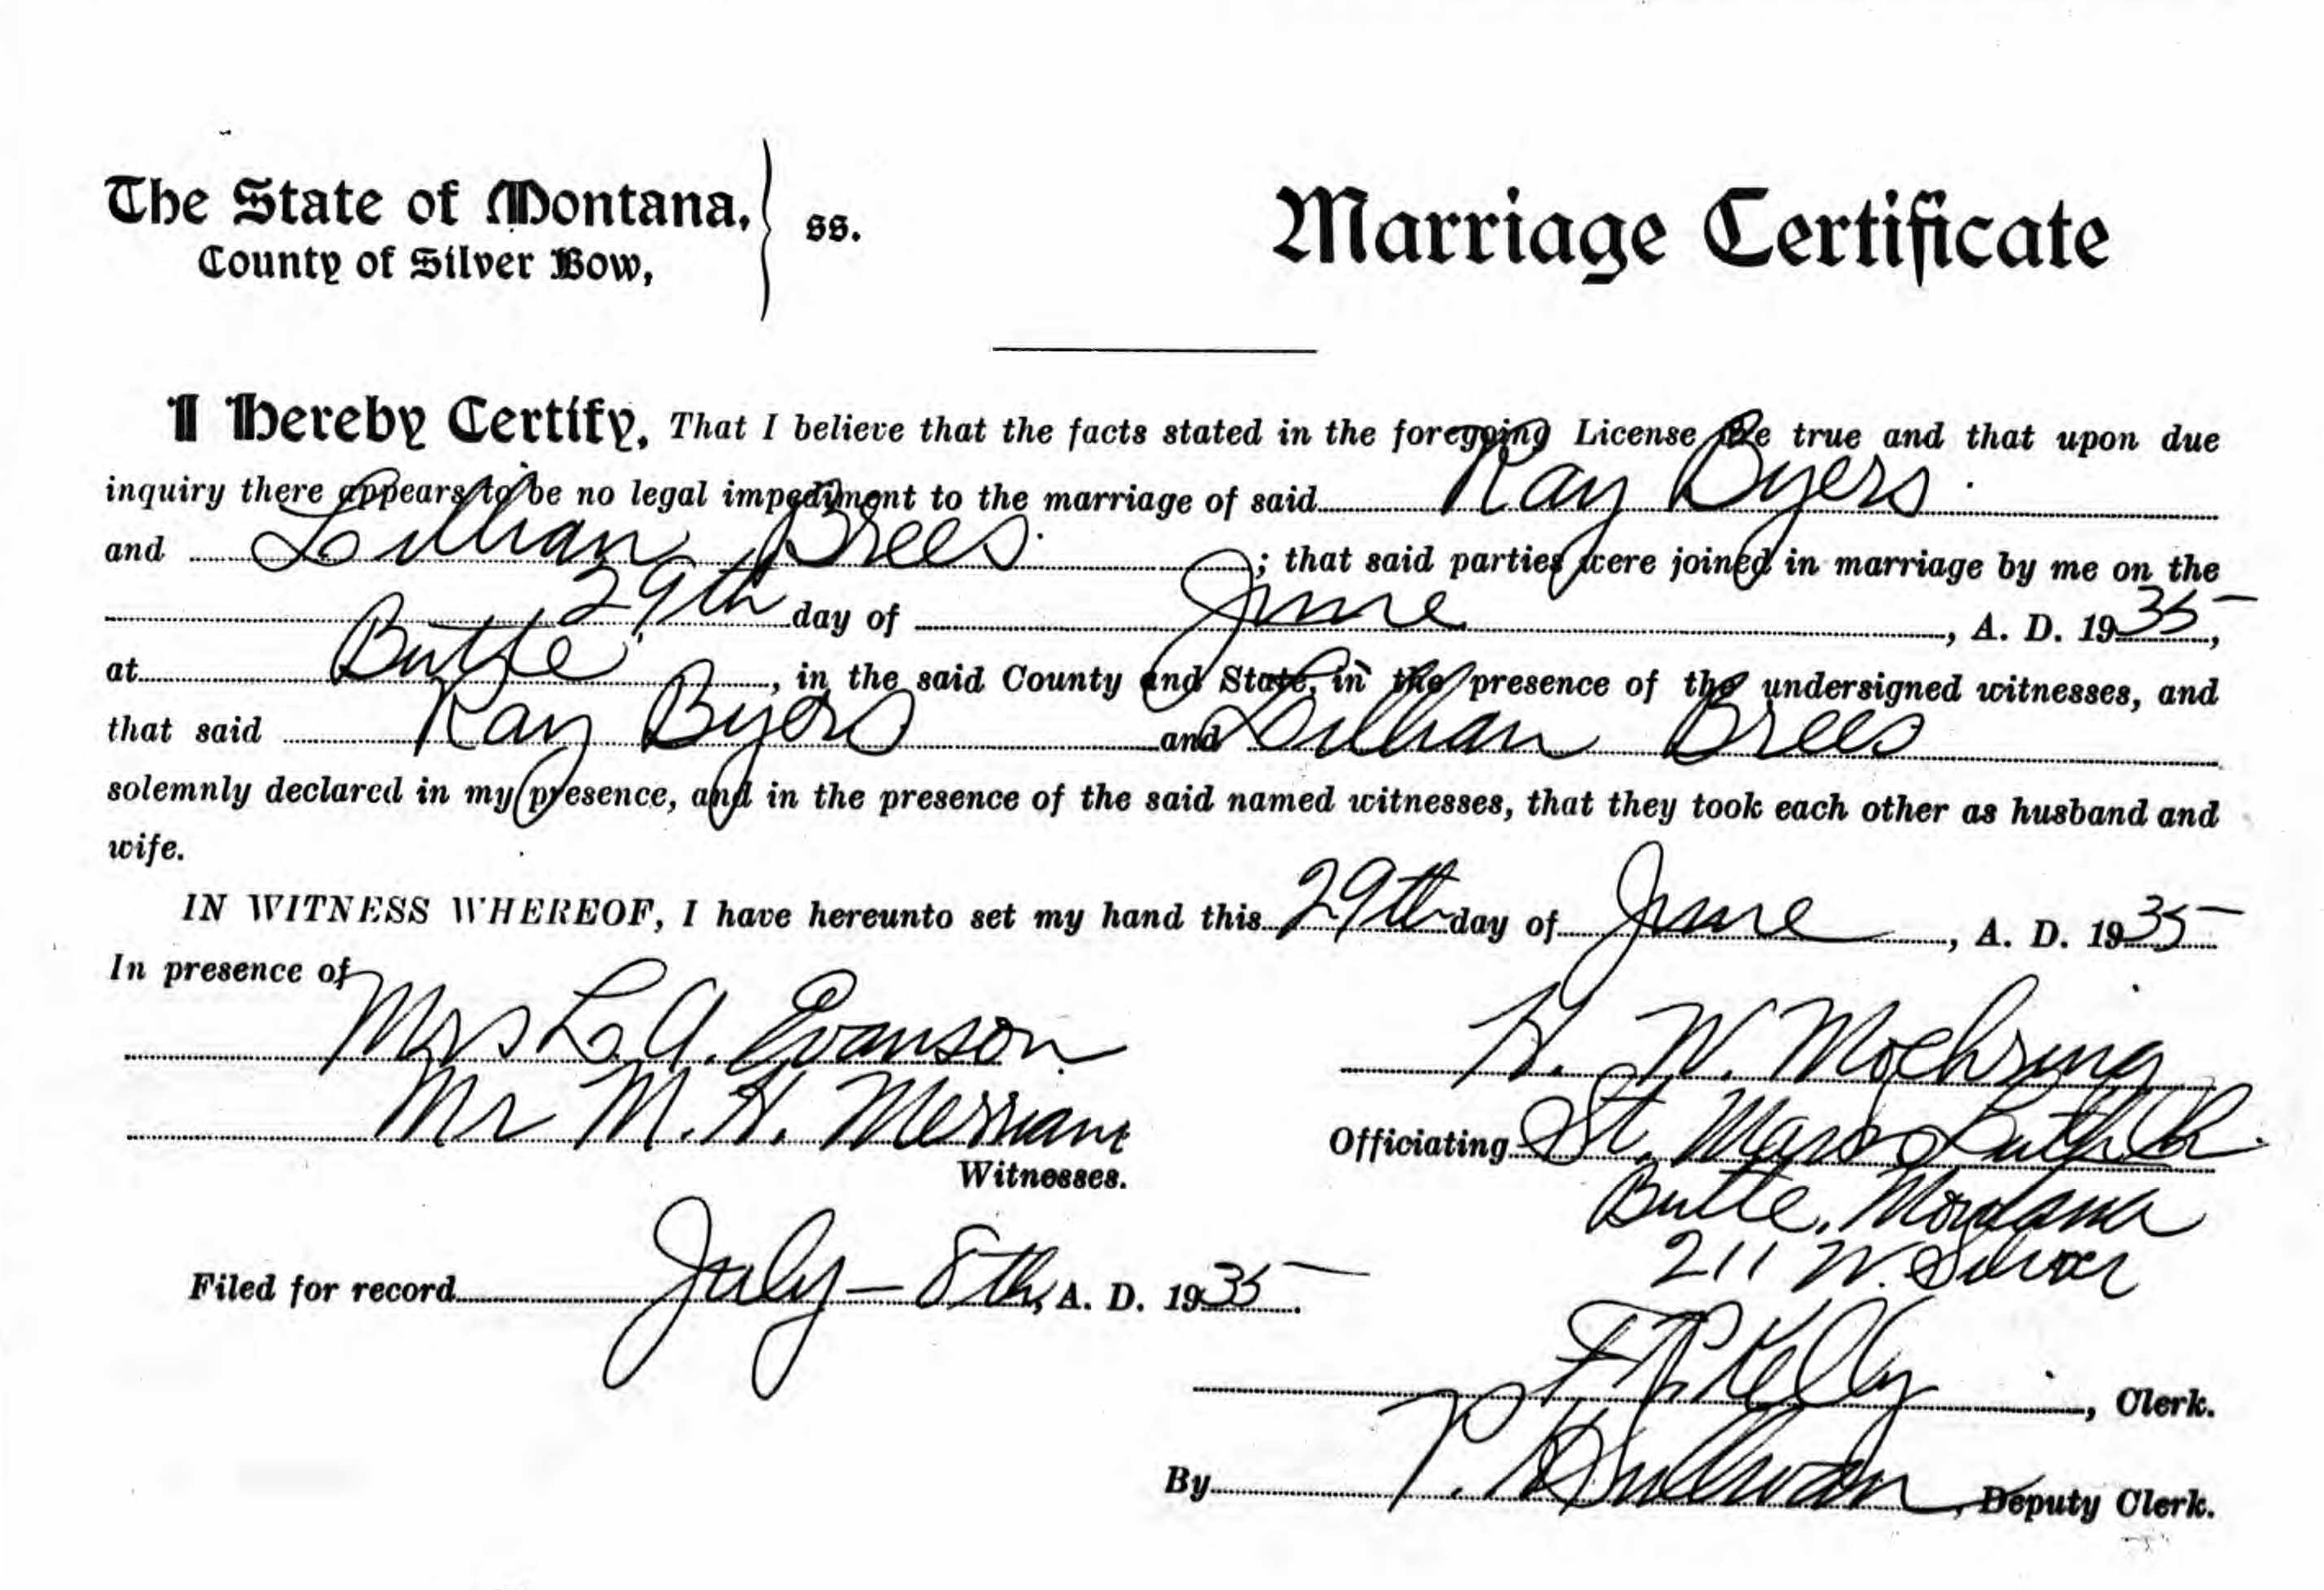 The State of Montana, ss.
County of Silver Bow,
Marriage Certificate
I Hereby Certify, That I believe that the facts stated in the foregoing License are true and that upon due
inquiry there appears to be no legal impediment to the marriage of said Ray Byers
and Lillian Brees ; that said parties were joined in marriage by me on the
29th day of June , A. D. 1935,
at Butte , in the said County and State, in the presence of the undersigned witnesses, and
that said Ray Byers and Lillian Brees
solemnly declared in my presence, and in the presence of the said named witnesses, that they took each other as husband and
wife.
IN WITNESS WHEREOF, I have hereunto set my hand this 29th day of June , A. D. 1935
In presence of
Mrs L. A. Evanson
Mr M. H. Merriam
Witnesses.
H. W. Moehring
Officiating St. Marks Luth Ch.
Butte, Montana
211 W. Silver
Filed for record July - 8th, A. D. 1935.
Kelly , Clerk.
By P. Sullivan , Deputy Clerk.